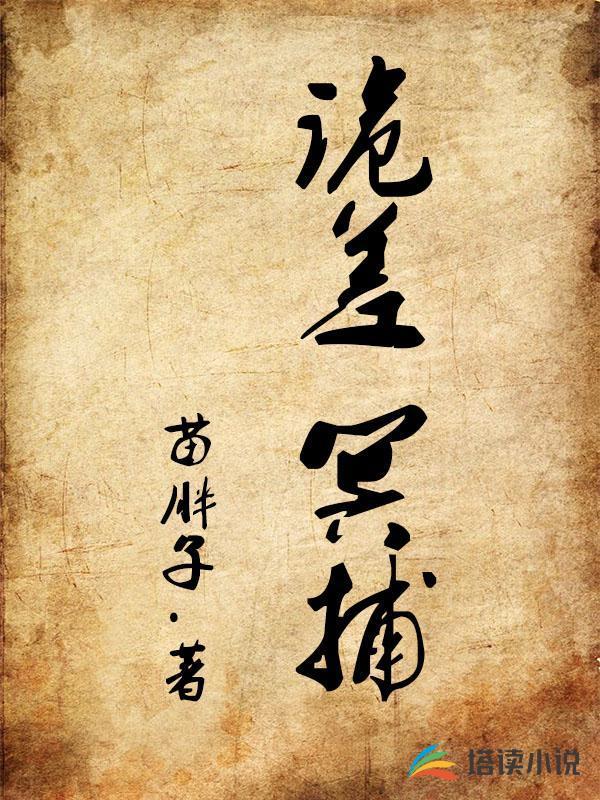 诡差 冥捕
苗胖子·著
培读小说